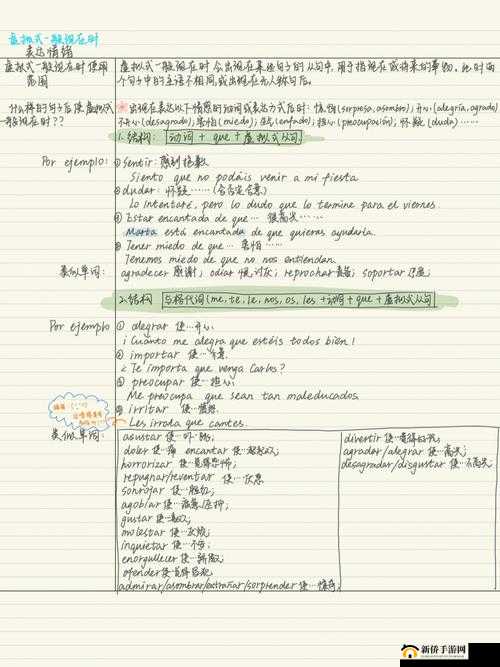 虚拟式一般现在时
表达情绪
虚拟式一般现在时使用范围
虚拟式一般现在时会出现在某些句子的从句中,用于指现在或将来的事物。此时两个句子中的主语不相同,或出现在无人称句后。
什么样的句子后使虚拟式一般现在时??
出现在表达以下情感的动词或表达方式后时: 惊讶(sorpresa, asombro); 开心(alegría, agrado)
不开心(desagrado); 害怕(miedo); 生气(enfado); 担心(preocupación); 怀疑(duda)……
1.结构: 动词 + que + 虚拟式从句
Por ejemplo: ①sentir: 感到抱歉
Siento que no podáis venir a mi fiesta
②dudar: 怀疑……(含否定含意)
Lo intentaré, pero lo dudo que lo termine para el viernes.
③Estar encantada de que… 很高兴……
Marta está encantada de que quieras ayudarla.
④Tener miedo de que… 害怕……
Tenemos miedo de que no nos entiendan.
类似单词: agradecer 感谢; odiar 恨,讨厌; reprochar 责备; soportar 忍受。
2.结构 与格代词(me, te, le, nos, os, les + 动词 + que + 虚拟式从句
Por ejemplo ① alegrar 使…开心
¡Cuánto me alegra que estéis todos bien!
② importar 使…介意
¿Te importa que venga Carlos?
③ preocupar 使…担心
Me preocupa que sean tan maleducados.
④ irritar 使…愤怒
Les irrita que cantes.
类似单词:
asustar 使…吓…;
doler 使…痛 encantar 使…
horrorizar 使…觉得恐怖;
repugnar/reventar 使…厌恶
sonrojar 使…脸红;
agobiar 使…
gustar 使…喜欢;
molestar 使…
inquietar 使…不安;
enorgullecer 使…骄傲;
ofender 使…
admirar/asombrar/extrañar/sorprender 使…惊奇;
divertir 使…觉得好玩;
agradar/alegrar 使…高兴;
desagradar/disgustar 使…不高兴;
新侨手游网